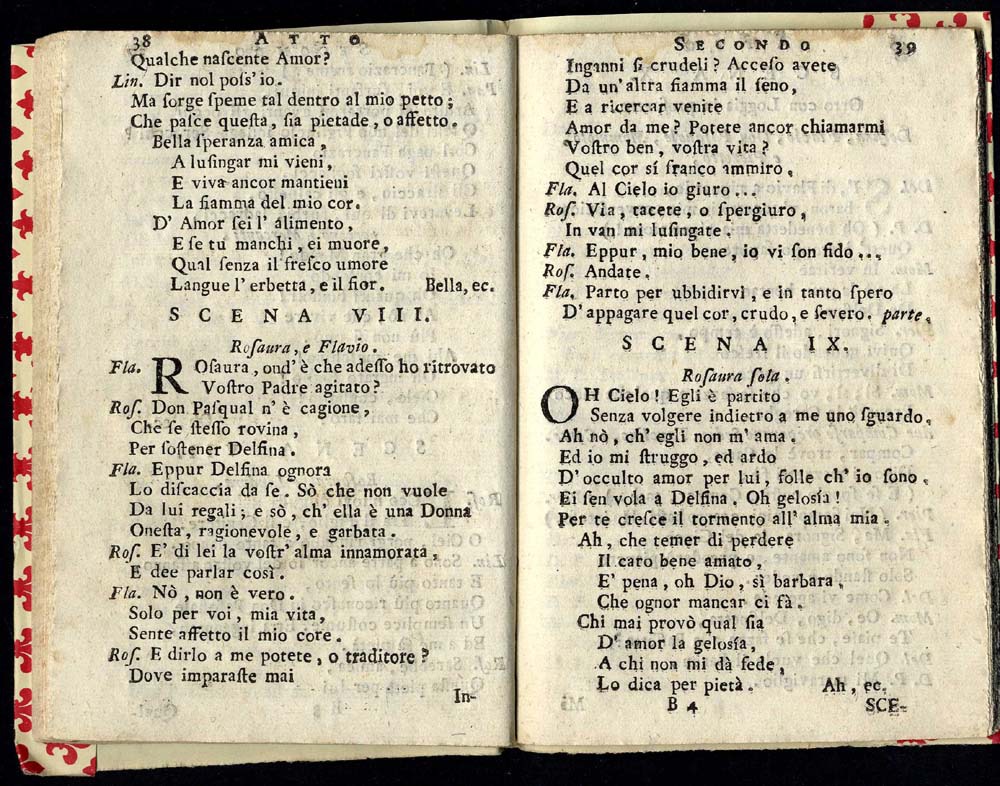 38 ATTO
Qualche naſcente Amor?
Lin. Dir nol poſs' io.
Ma ſorge ſpeme tal dentro al mio petto;
Che paſce queſta, ſia pietade, o affetto.
Bella ſperanza amica,
A luſingar mi vieni,
E viva ancor mantieni
La fiamma del mio cor.
D' Amor ſei l' alimento,
E ſe tu manchi, ei muore,
Qual ſenza il freſco umore
Langue l' erbetta, e il fior. Bella, ec.
SCENA VIII.
Roſaura, e Flavio.
Fla. ROſaura, ond' è che adeſſo ho ritrovato
Voſtro Padre agitato?
Roſ. Don Paſqual n' è cagione,
Che ſe ſteſſo rovina,
Per ſoſtener Delfina.
Fla. Eppur Delfina ognora
Lo diſcaccia da ſe. Sò che non vuole
Da lui regali; e sò, ch' ella è una Donna
Oneſta, ragionevole, e garbata.
Roſ. E' di lei la voſtr' alma innamorata,
E dee parlar così.
Fla. Nò, non è vero.
Solo per voi, mia vita,
Sente affetto il mio core.
Roſ. E dirlo a me potete, o traditore?
Dove imparaſte mai
In-
SECONDO 39
Inganni ſi crudeli? Acceſo avete
Da un' altra fiamma il ſeno,
E a ricercar venite
Amor da me? Potete ancor chiamarmi
Voſtro ben, voſtra vita?
Quel cor sí franco ammiro.
Fla. Al Cielo io giuro...
Roſ. Via, tacete, o ſpergiuro,
In van mi luſingate.
Fla. Eppur, mio bene, io vi ſon fido...
Roſ. Andate.
Fla. Parto per ubbidirvi, e in tanto ſpero
D' appagare quel cor, crudo, e ſevero. parte.
SCENA IX.
Roſaura ſola.
OH Cielo! Egli è partito
Senza volgere indietro a me uno ſguardo.
Ah nò, ch' egli non m' ama.
Ed io mi ſtruggo, ed ardo
D' occulto amor per lui, folle ch' io ſono.
Ei ſen vola a Delfina. Oh geloſia!
Per te creſce il tormento all' alma mia.
Ah, che temer di perdere
Il caro bene amato,
E' pena, oh Dio, sì barbara,
Che ognor mancar ci fà.
Chi mai provò qual ſia
D' amor la geloſía,
A chi non mi dà fede,
Lo dica per pietà. Ah, ec.
B 4 SCE-